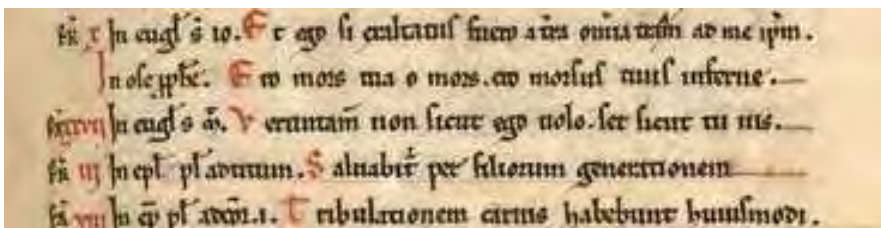 x In eugl̄ s̄ io. Et ego si exaltatus fuero a tr̄a om̄ia trah̄ ad me ip̄m.
In osee ꝓph̄e. Ero mors tua o mors. ero morsus tuus inferne.
xxvii In eugl̄ s m̄. Veruntam̄ non sicut ego uolo. set sicut tu uis.
iii In epl̄ pl̄ ad timm. Saluabit̄ per filiorum generationem
viii In ep̄ pl̄ ad cor̄. i. Tribulationem carnis habebunt huiusmodi.